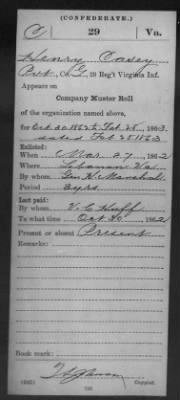 (CONFEDERATE.)
C 29 Va.
Henry Casey
Pvt, Co. G, 29 Reg't Virginia Inf.
Appears on
Company Muster Roll
of the organization named above,
for Oct 30 1862 to Feb 28, 1863.
dated Feb 28 1863
Enlisted:
When Mar. 27, 1862
Where Lebanon Va
By whom Gen H. Marshal
Period 3 yrs
Last paid:
By whom V. C. Huff
To what time Oct 30, 1862
Present or absent Present
Remarks:
Book mark:
(642) Copyist.